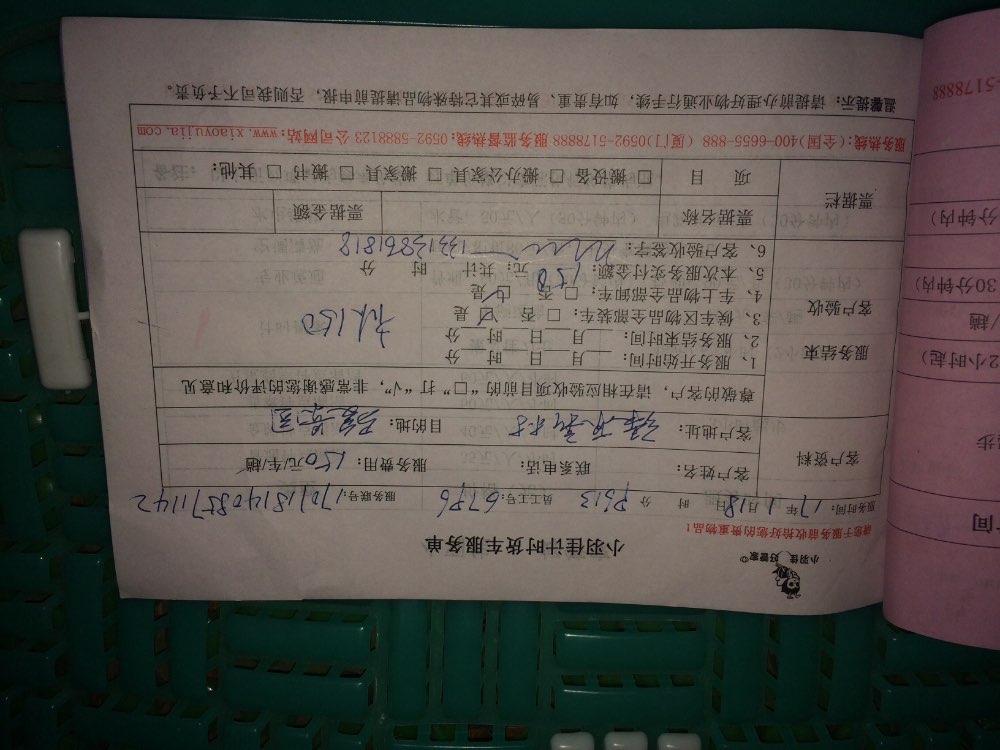 小羽佳 好管家
小羽佳计时货车服务单
请您于服务前收拾好您的贵重物品！
服务时间：17年1月18日 时 分 P513 员工工号：6786 服务联号：1701181408571142
客户资料
客户姓名： 联系电话： 服务费用：150元/车/趟
客户地址： 目的地：
服务结束
客户验收
尊敬的客户，请在相应验收项目前的“□”打“√”，非常感谢您的评价和意见
1、服务开始时间： 月 日 时 分
2、服务结束时间： 月 日 时 分
3、候车区物品全部装车：□ 否 □ 是
4、车上物品全部卸车：□ 否 □ 是
5、本次服务实付金额：150元；共计 时 分
6、客户验收签字： 13313861818
150
票据栏
票据名称 票据金额
项 目 □ 搬设备 □ 搬办公家具 □ 搬家具 □ 搬书 □ 其他：
服务热线：(全国)400-6655-888 (厦门)0592-5178888 服务监督热线：0592-5888123 公司网站：www.xiaoyujia.com
温馨提示：请提前办理好物业通行手续，如有贵重、易碎或其它特殊物品请提前申报，否则我司不予负责。
-5178888
分钟内）
30分钟内）
/趟
2小时起）
步
间